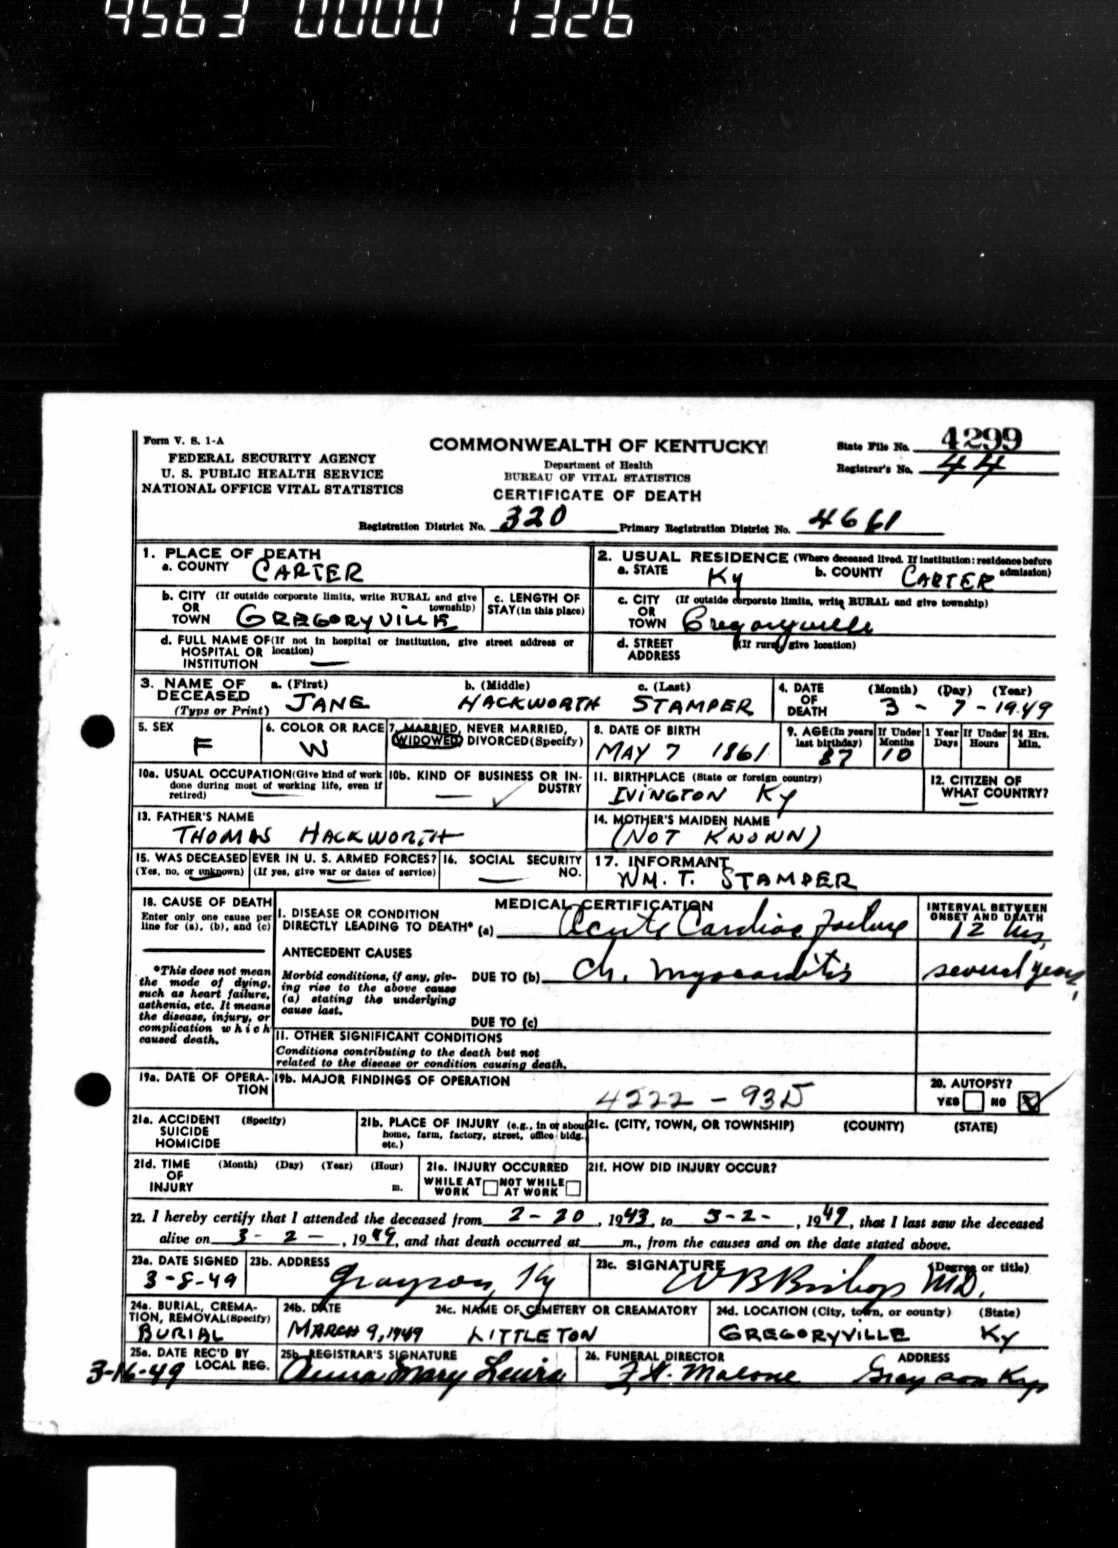 4563 0000 1326
Form V. S. 1-A
FEDERAL SECURITY AGENCY
U. S. PUBLIC HEALTH SERVICE
NATIONAL OFFICE VITAL STATISTICS
COMMONWEALTH OF KENTUCKY
Department of Health
BUREAU OF VITAL STATISTICS
CERTIFICATE OF DEATH
State File No. 4299
Registrar's No. 44
Registration District No. 320 Primary Registration District No. 4661
1. PLACE OF DEATH
a. COUNTY CARTER
2. USUAL RESIDENCE (Where deceased lived. If institution: residence before admission)
a. STATE Ky b. COUNTY CARTER
b. CITY (If outside corporate limits, write RURAL and give township)
OR
TOWN GREGORYVILLE
c. LENGTH OF
STAY (in this place)
c. CITY (If outside corporate limits, write RURAL and give township)
OR
TOWN Gregoryville
d. FULL NAME OF (If not in hospital or institution, give street address or location)
HOSPITAL OR
INSTITUTION —
d. STREET (If rural, give location)
ADDRESS
3. NAME OF DECEASED (Type or Print)
a. (First) b. (Middle) c. (Last)
JANE HACKWORTH STAMPER
4. DATE OF DEATH (Month) (Day) (Year)
3 - 7 - 1949
5. SEX
F
6. COLOR OR RACE
W
7. MARRIED, NEVER MARRIED,
WIDOWED, DIVORCED (Specify)
8. DATE OF BIRTH
MAY 7 1861
9. AGE (In years last birthday) 87
If Under 1 Year Months 10 Days
If Under 24 Hrs. Hours Min.
10a. USUAL OCCUPATION (Give kind of work done during most of working life, even if retired) —
10b. KIND OF BUSINESS OR INDUSTRY —
11. BIRTHPLACE (State or foreign country)
IVINGTON Ky
12. CITIZEN OF WHAT COUNTRY?
—
13. FATHER'S NAME
THOMAS HACKWORTH
14. MOTHER'S MAIDEN NAME
(NOT KNOWN)
15. WAS DECEASED EVER IN U. S. ARMED FORCES?
(Yes, no, or unknown) (If yes, give war or dates of service)
16. SOCIAL SECURITY NO.
—
17. INFORMANT
WM. T. STAMPER
18. CAUSE OF DEATH
Enter only one cause per line for (a), (b), and (c)
*This does not mean the mode of dying, such as heart failure, asthenia, etc. It means the disease, injury, or complication which caused death.
MEDICAL CERTIFICATION
INTERVAL BETWEEN ONSET AND DEATH
I. DISEASE OR CONDITION
DIRECTLY LEADING TO DEATH* (a) Acute Cardiac Failure 12 hrs.
ANTECEDENT CAUSES
Morbid conditions, if any, giving rise to the above cause (a) stating the underlying cause last.
DUE TO (b) Ch. Myocarditis several years
DUE TO (c)
II. OTHER SIGNIFICANT CONDITIONS
Conditions contributing to the death but not related to the disease or condition causing death.
19a. DATE OF OPERATION
19b. MAJOR FINDINGS OF OPERATION
4222 - 93D
20. AUTOPSY?
YES NO
21a. ACCIDENT (Specify)
SUICIDE
HOMICIDE
21b. PLACE OF INJURY (e.g., in or about home, farm, factory, street, office bldg., etc.)
21c. (CITY, TOWN, OR TOWNSHIP) (COUNTY) (STATE)
21d. TIME (Month) (Day) (Year) (Hour)
OF
INJURY m.
21e. INJURY OCCURRED
WHILE AT WORK NOT WHILE AT WORK
21f. HOW DID INJURY OCCUR?
22. I hereby certify that I attended the deceased from 2 - 20, 1943, to 3-2-, 1949, that I last saw the deceased
alive on 3 - 2 -, 1949, and that death occurred at m., from the causes and on the date stated above.
23a. DATE SIGNED
3-8-49
23b. ADDRESS
Grayson, Ky
23c. SIGNATURE (Degree or title)
W B Bishop MD.
24a. BURIAL, CREMATION, REMOVAL (Specify)
BURIAL
24b. DATE
MARCH 9, 1949
24c. NAME OF CEMETERY OR CREAMATORY
LITTLETON
24d. LOCATION (City, town, or county) (State)
GREGORYVILLE Ky
25a. DATE REC'D BY LOCAL REG.
3-16-49
25b. REGISTRAR'S SIGNATURE
Anna Mary Lewis
26. FUNERAL DIRECTOR ADDRESS
F. H. Malone Grayson Ky